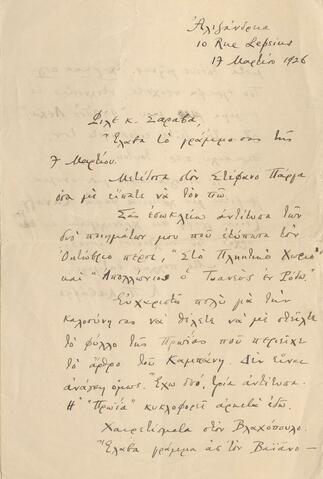 Ἀλεξάνδρεια
10 Rue Lepsius
17 Μαρτίου 1926
Φίλε κ. Σαραβᾶ,
Ἔλαβα τὸ γράμμα σας τῆς
7 Μαρτίου.
Μετέδοσα στὸν Στέφανο Πάργα
ὅσα μὲ εἴπατε νὰ τὸν πῶ.
Σᾶς ἐσωκλείω ἀντίτυπα τῶν
δυὸ ποιημάτων μου ποῦ ἐτύπωσα τὸν
Ὀκτώβριο πέρσι, "Στὸ Πληκτικὸ Χωριὸ"
καὶ "Ἀπολλώνιος ὁ Τυανεὺς ἐν Ρόδῳ".
Εὐχαριστῶ πολὺ γιὰ τὴν
καλοσύνη σας νὰ θέλετε νὰ μὲ στείλτε
τὸ φύλλο τῆς Πρωΐας ποῦ περιεῖχε
τὸ ἄρθρο τοῦ Καμπάνη. Δὲν εἶναι
ἀνάγκη ὅμως. Ἔχω δυό, τρία ἀντίτυπα.
Ἡ "Πρωΐα" κυκλοφορεῖ ἀρκετὰ ἐδῶ.
Χαιρετίσματα στὸν Βλαχόπουλο.
Ἔλαβα γράμμα ἀπ τὸν Βαϊάνο —